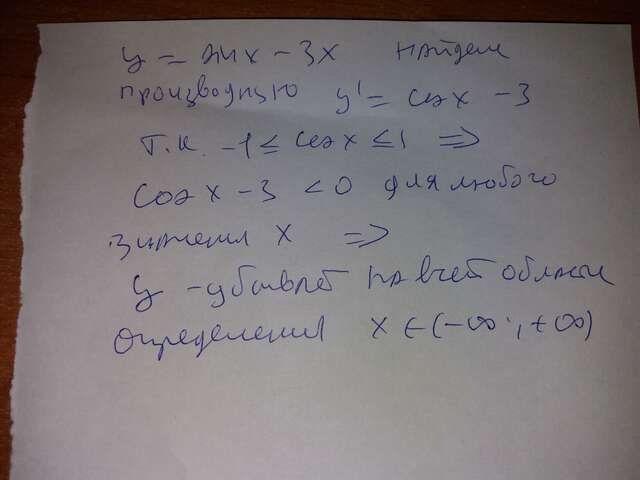 y = sin x - 3x найдем
производную y' = cos x - 3
т.к. -1 ≤ cos x ≤ 1 ⇒
cos x - 3 < 0 для любого
значения x ⇒
y - убывает на всей области
определения x ∈ (-∞; +∞)